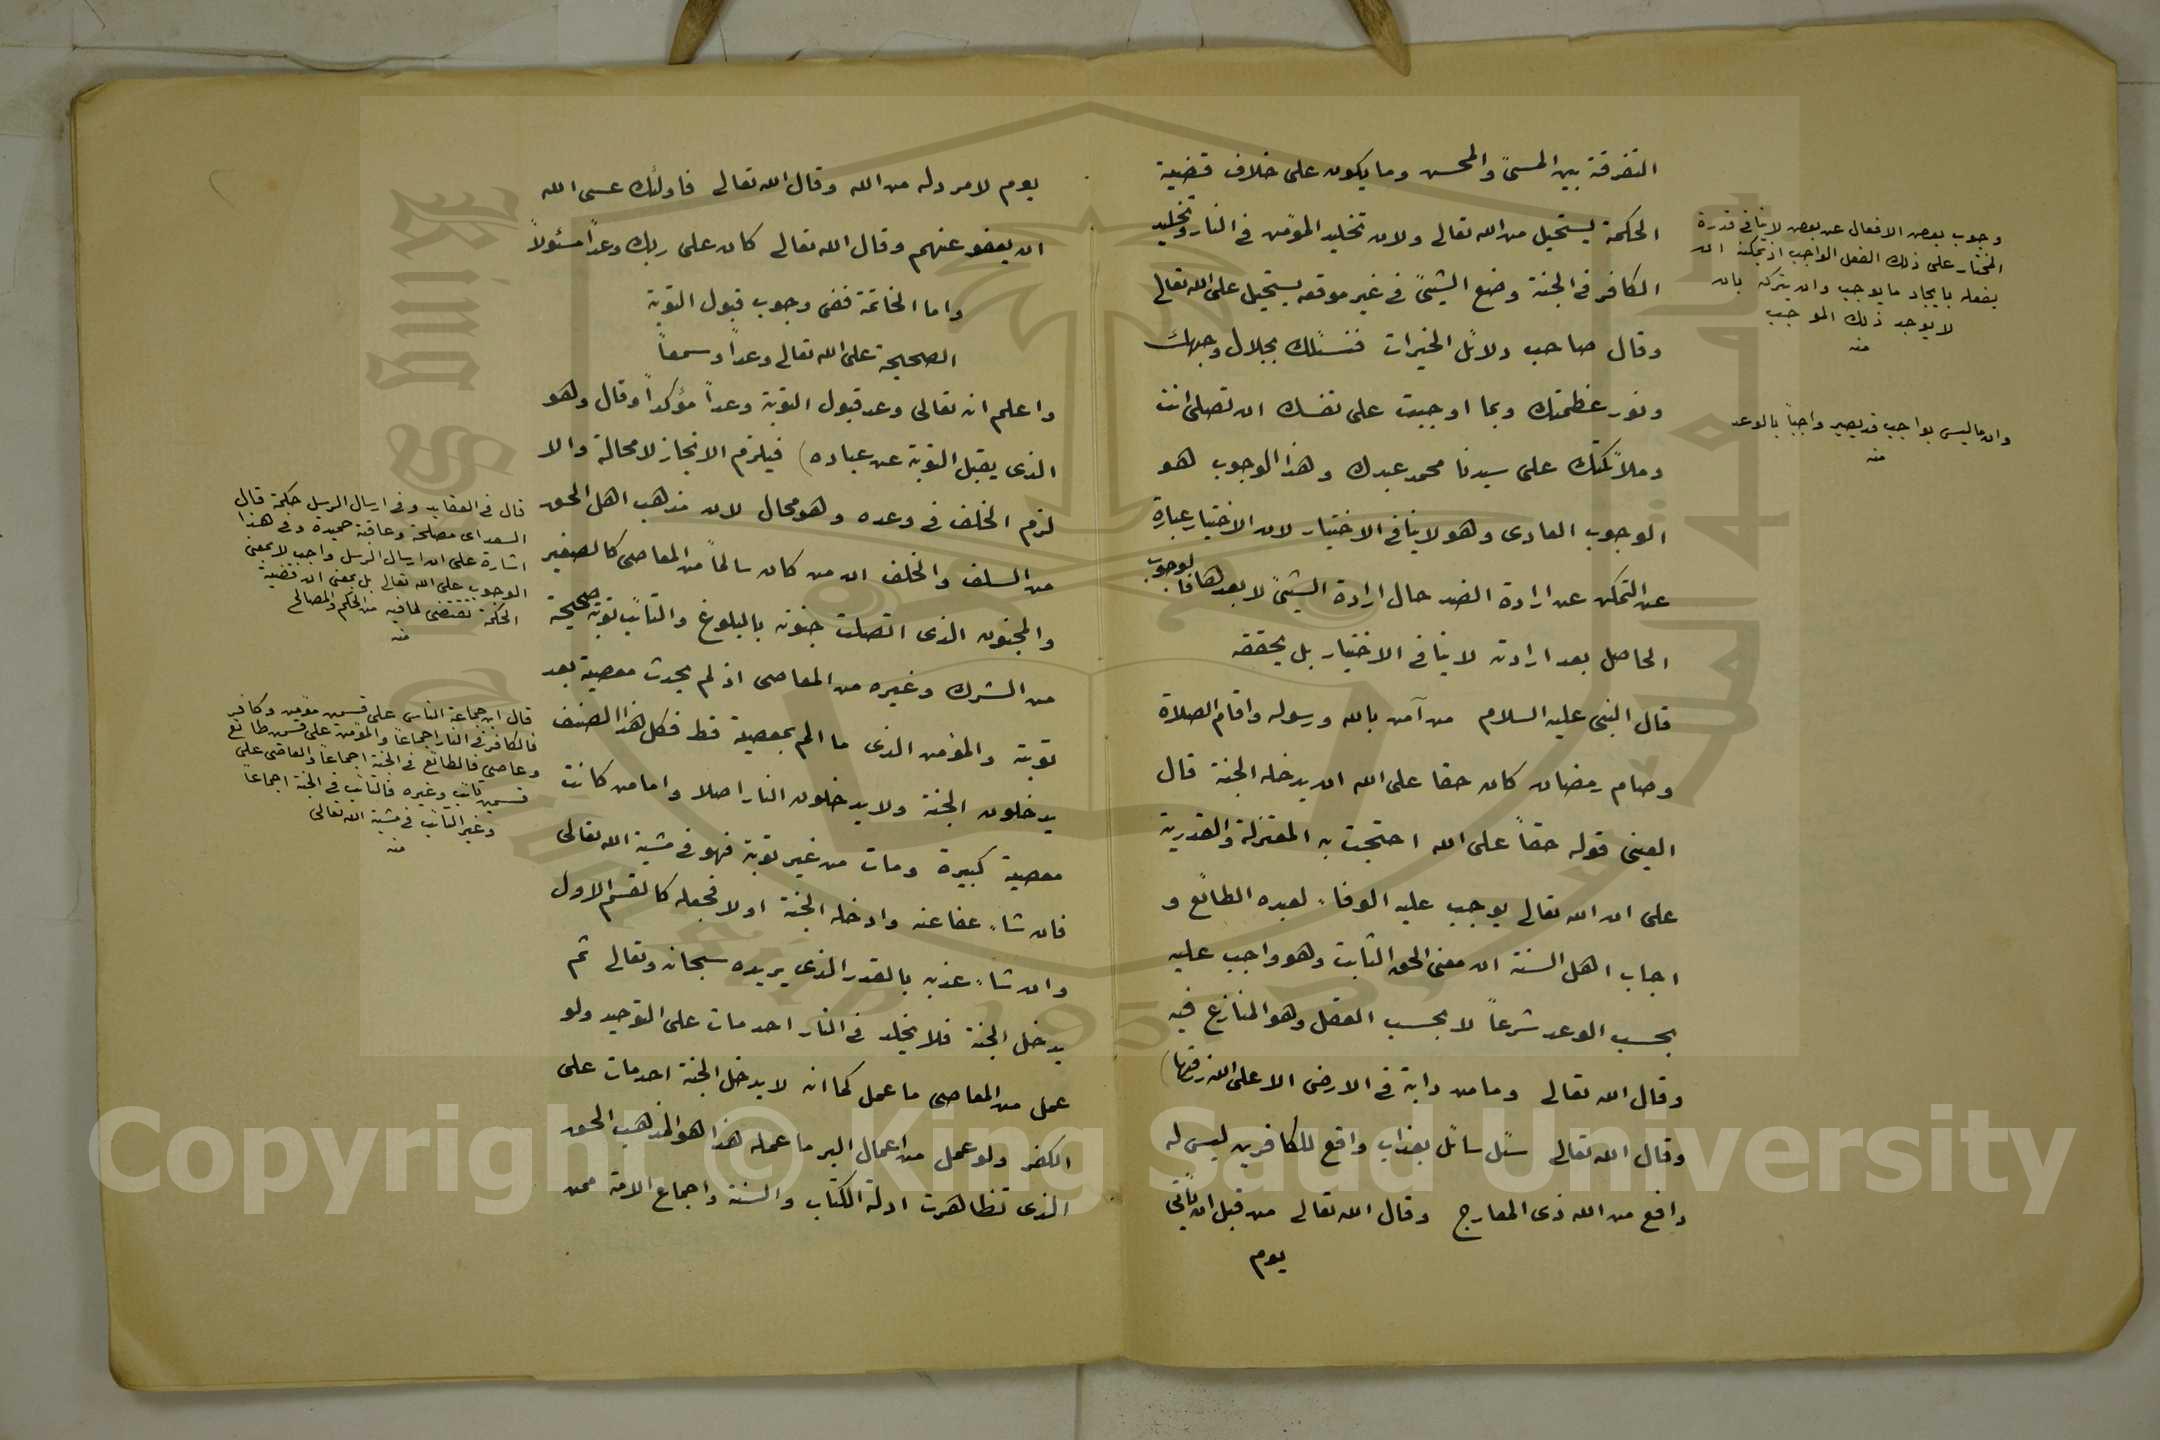 التفرقة بين المسئ والمحسن وما يكون على خلاف قضية
الحكمة يستحيل من الله تعالى ولان تخليد المؤمن فى النار وتخليد
الكافر فى الجنة وضع الشيئ فى غير موقعه يستحيل على الله تعالى
وقال صاحب دلائل الخيرات فنسئلك بجلال وجهك
ونور عظمتك وبما اوجبت على نفسك ان تصلى انت
وملائكتك على سيدنا محمد عبدك وهذا الوجوب هو
الوجوب العادى وهو لاينافى الاختيار لان الاختيار عبارة
عن التمكن عن ارادة الضد حال ارادة الشيئ لا بعدها فالوجوب
الحاصل بعد ارادته لا ينافى الاختيار بل يحققه
قال النبى عليه السلام من آمن بالله ورسوله واقام الصلاة
وصام رمضان كان حقا على الله ان يدخله الجنة قال
العينى قوله حقاً على الله احتجت به المعتزلة والقدرية
على ان الله تعالى يوجب عليه الوفاء لعبده الطائع و
اجاب اهل السنة ان معنى الحق الثابت وهو واجب عليه
بحسب الوعد شرعاً لا بحسب العقل وهو المنازع فيه
وقال الله تعالى وما من دابة فى الارض الا على الله رزقها)
وقال الله تعالى سئل سائل بعذاب واقع للكافرين ليس له
دافع من الله ذى المعارج وقال الله تعالى من قبل ان ياتى
يوم
وجوب بعض الافعال عن بعض لا ينافى قدرة
المختار على ذلك الفعل الواجب اذ يمكنه ان
يفعله بايجاد ما يوجب وان يتركه بان
لا يوجد ذلك الموجب
منه
وان ما ليس بواجب قد يصير واجباً بالوعد
منه
يوم لا مرد له من الله وقال الله تعالى فاولئك عسى الله
ان يعفو عنهم وقال الله تعالى كان على ربك وعداً مسئولاً
واما الخاتمة ففى وجوب قبول التوبة
الصحيحة على الله تعالى وعداً وسمعاً
واعلم انه تعالى وعد قبول التوبة وعداً مؤكداً وقال وهو
الذى يقبل التوبة عن عباده) فيلزم الانجاز لا محالة والا
لزم الخلف فى وعده وهو محال لان مذهب اهل الحق
من السلف والخلف ان من كان سالماً من المعاصى كالصغير
والمجنون الذى اتصلت جنونه بالبلوغ والتائب توبة صحيحة
من الشرك وغيره من المعاصى اذ لم يحدث معصية بعد
توبة والمؤمن الذى ما الم بمعصية قط فكل هذا الصنف
يدخلون الجنة ولا يدخلون النار اصلا واما من كانت
معصية كبيرة ومات من غير توبة فهو فى مشية الله تعالى
فان شاء عفا عنه وادخله الجنة اولا فجعله كالقسم الاول
وان شاء عذبه بالقدر الذى يريده سبحانه وتعالى ثم
يدخل الجنة فلا يخلد فى النار احد مات على التوحيد ولو
عمل من المعاصى ما عمل كما انه لا يدخل الجنة احد مات على
الكفر ولو عمل من اعمال البر ما عمله هذا هو المذهب الحق
الذى تظاهرت ادلة الكتاب والسنة واجماع الامة ممن
قال فى العقايد وفى ارسال الرسل حكمة قال
السعد اى مصلحة وعاقبة حميدة وفى هذا
اشارة على ان ارسال الرسل واجب لا بمعنى
الوجوب على الله تعالى بل بمعنى ان قضية
الحكمة تقتضى لما فيه من الحكم والمصالح
منه
قال ابن جماعة الناس على قسمين مؤمن وكافر
فالكافر فى النار اجماعا والمؤمن على قسمين طائع
وعاصى فالطائع فى الجنة اجماعاً والعاصى على
قسمين تائب وغيره فالتائب فى الجنة اجماعاً
وغير التائب فى مشية الله تعالى
منه
Copyright © King Saud University